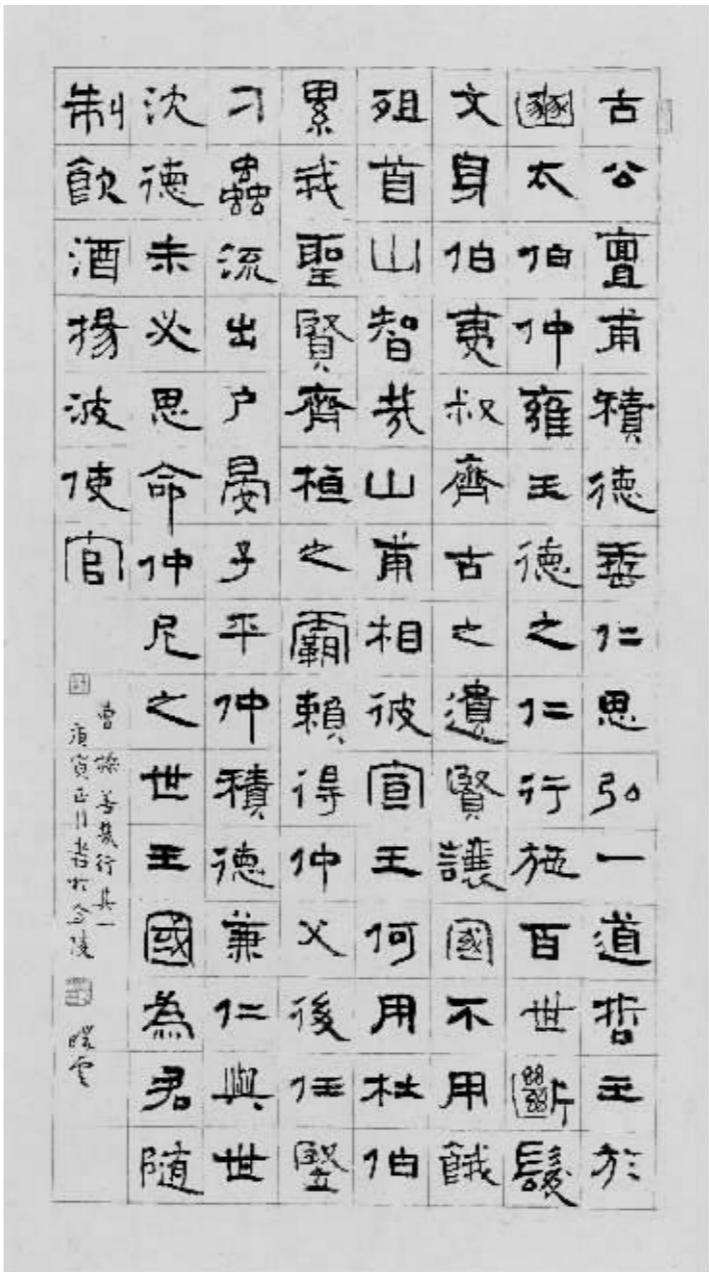 古公亶甫積德垂仁思弘一道哲王於
豳太伯仲雍王德之仁行施百世斷髮
文身伯夷叔齊古之遺賢讓國不用餓
殂首山智哉山甫相彼宣王何用杜伯
累我聖賢齊桓之霸賴得仲父後任豎
刁蟲流出户晏子平仲積德兼仁與世
沈德未必思命仲尼之世王國為君隨
制飲酒揚波使官
曹操善哉行其一
庚寅正月書於金陵